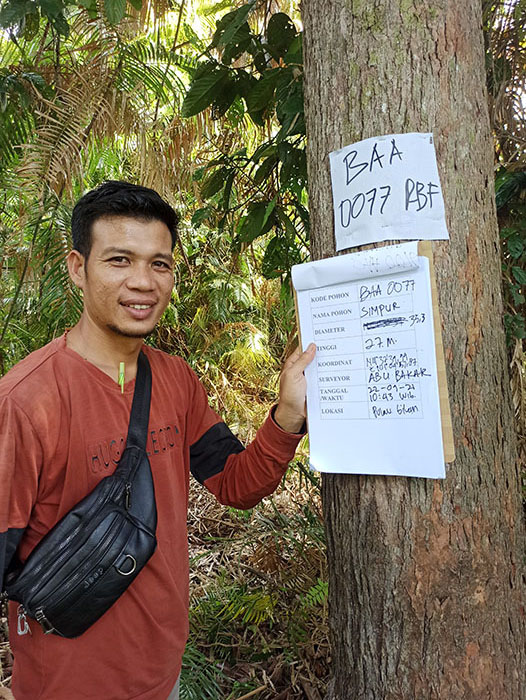 BAA
0077 RBF
KODE POHON BAA 0077
NAMA POHON SIMPUR
DIAMETER 353
TINGGI 27 M.
KOORDINAT
SURVEYOR ABU BAKAR
TANGGAL 22-09-21
/WAKTU 10:43 Wib
LOKASI Pulau